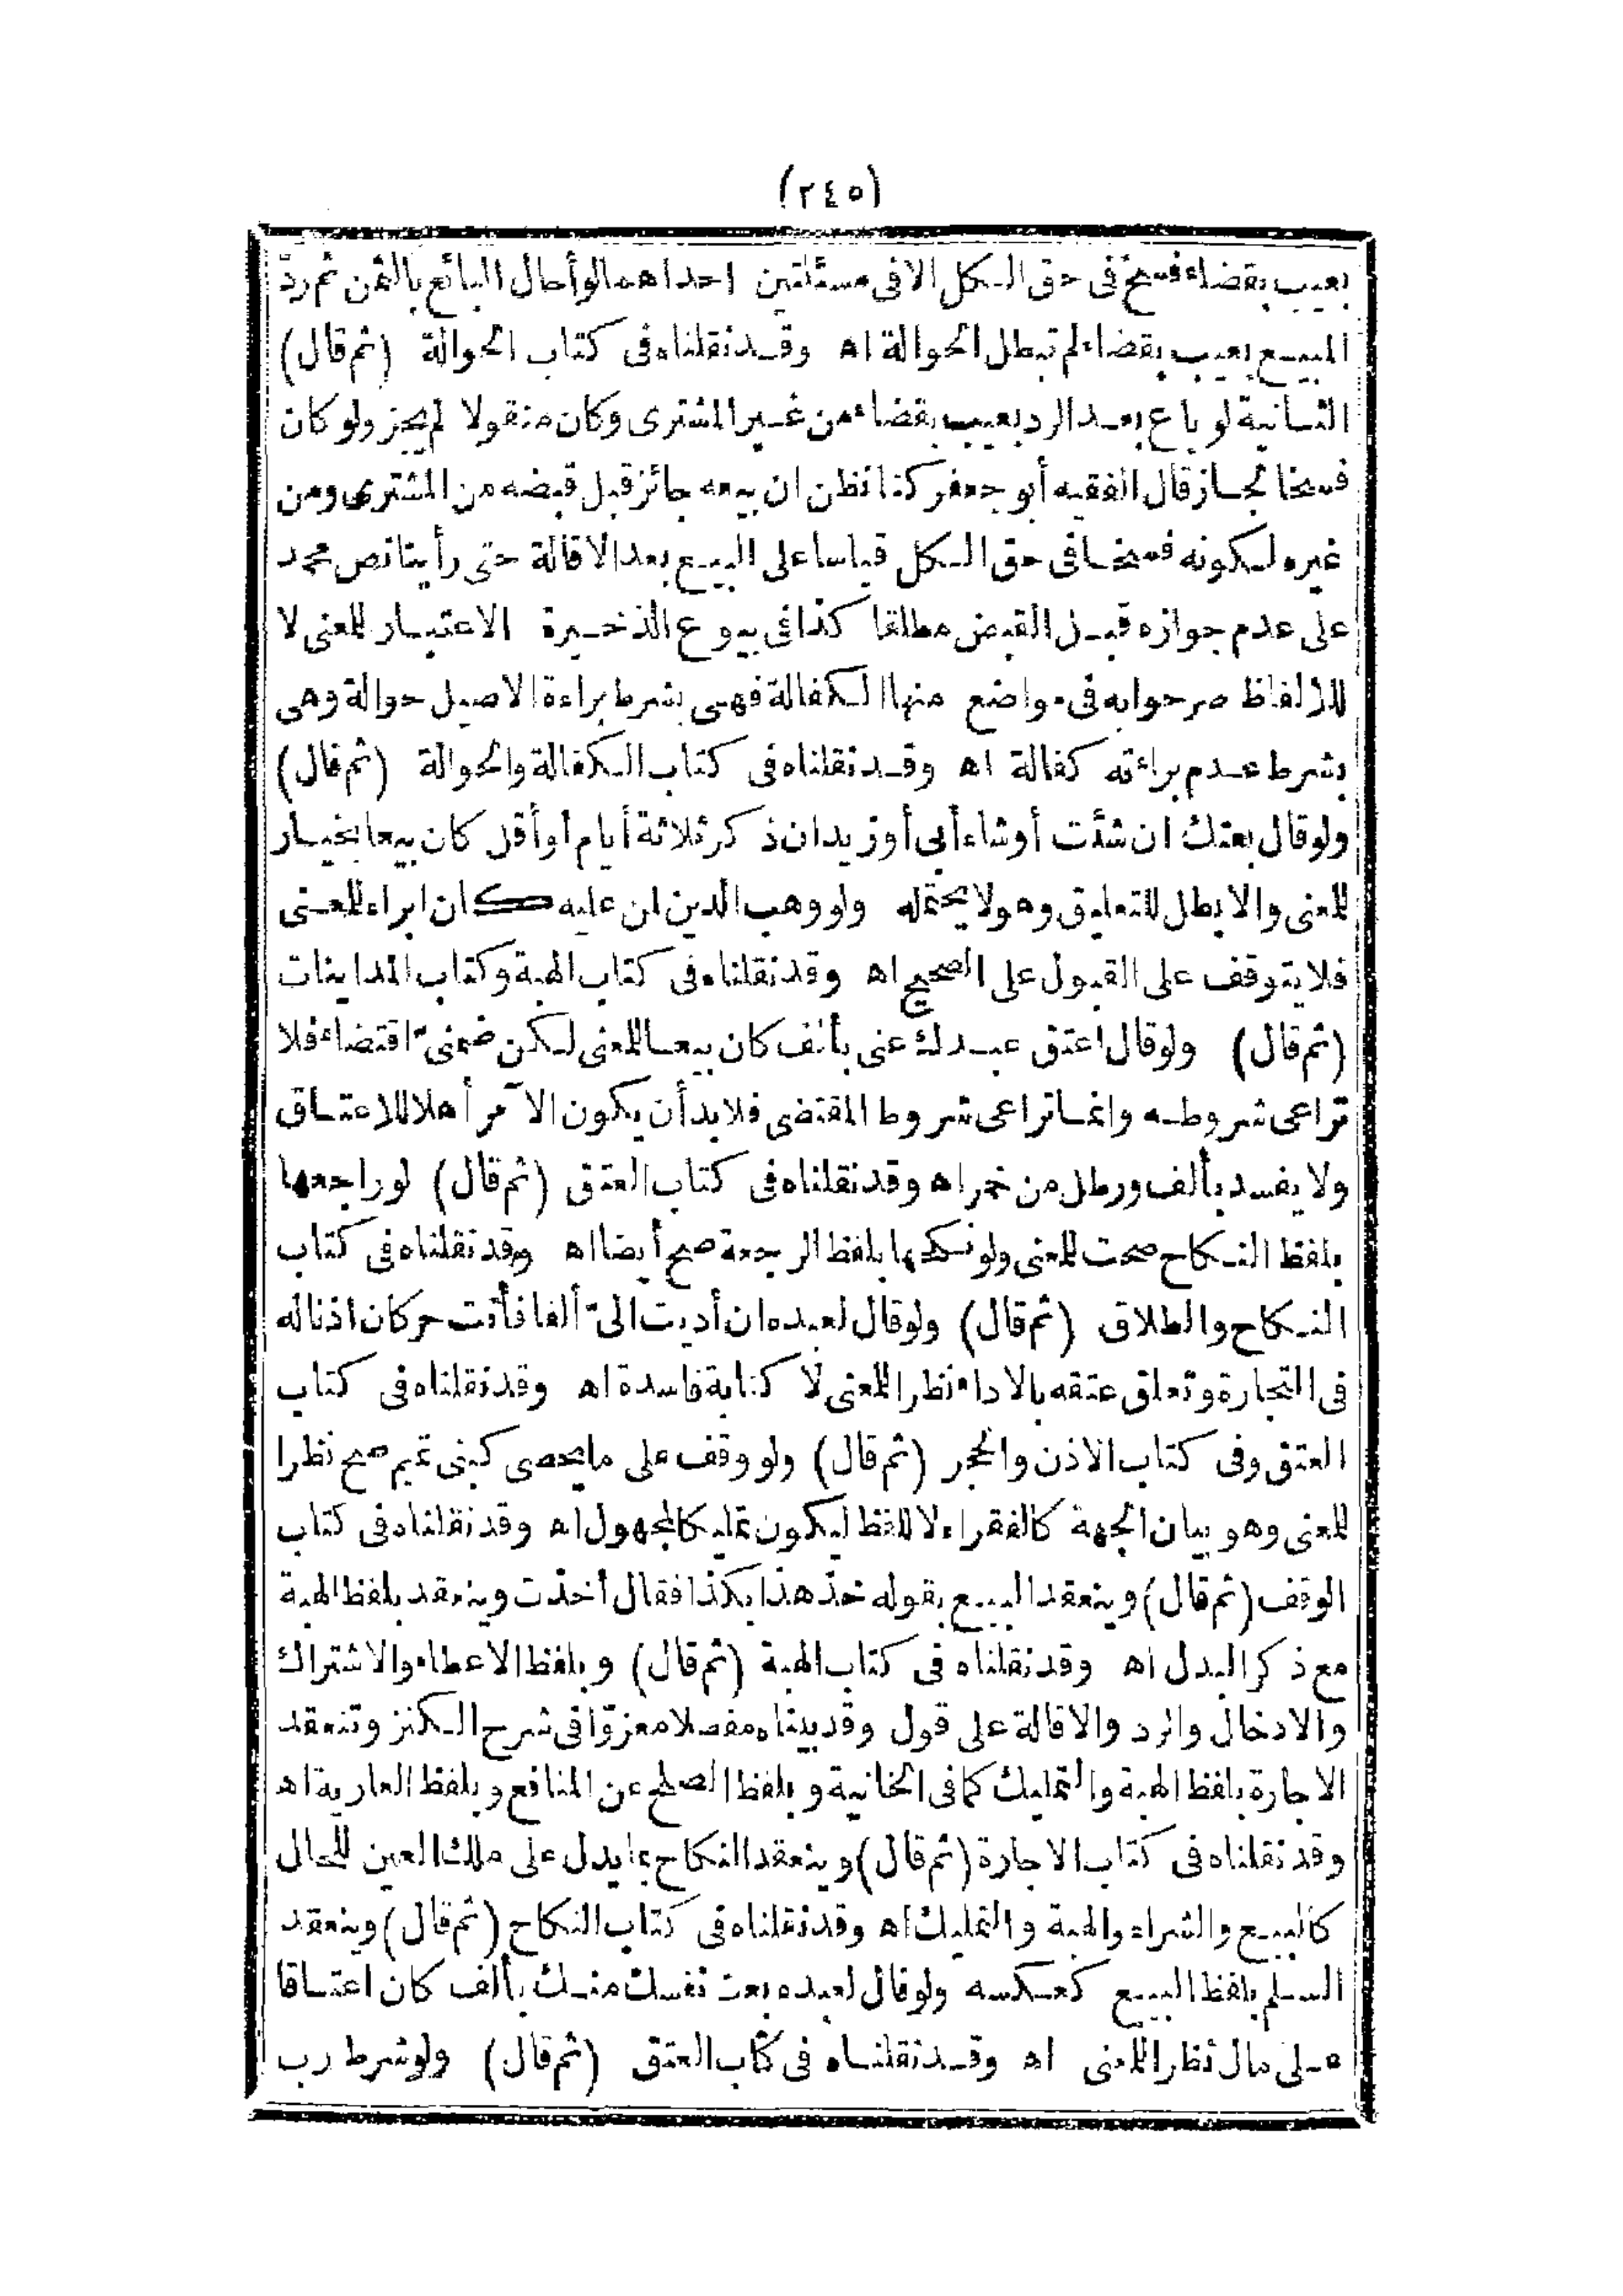 (٢٤٥)
بعيب بقضاء فسخ فى حق الكل الا فى مسئلتين احداهما لو أحال البائع بالثمن ثم ردّ
المبيع بعيب بقضاء لم تبطل الحوالة اه وقد نقلناه فى كتاب الحوالة (ثم قال)
الثانية لو باع بعد الرد بعيب بقضاء من غير المشترى وكان منقولا لم يجز ولو كان
فسخا لجاز قال الفقيه أبو جعفر كنا نظن ان بيعه جائز قبل قبضه من المشترى ومن
غيره لكونه فسخا فى حق الكل قياسا على البيع بعد الاقالة حتى رأينا نص محمد
على عدم جوازه قبل القبض مطلقا كذا فى بيوع الذخيرة الاعتبار للمعنى لا
للالفاظ صرحوا به فى مواضع منها الكفالة فهى بشرط براءة الاصيل حوالة وهى
بشرط عدم براءته كفالة اه وقد نقلناه فى كتاب الكفالة والحوالة (ثم قال)
ولو قال بعتك ان شئت أو شاء أبى أو زيد ان ذكر ثلاثة أيام أو أقل كان بيعا بخيار
للمعنى والا بطل للتعليق وهو لا يحتمله ولو وهب الدين لمن عليه كان ابراء للمعنى
فلا يتوقف على القبول على الصحيح اه وقد نقلناه فى كتاب الهبة وكتاب المداينات
(ثم قال) ولو قال اعتق عبدك عنى بألف كان بيعا للمعنى لكن ضمنىّ اقتضاء فلا
تراعى شروطه وانما تراعى شروط المقتضى فلا بد أن يكون الآمر أهلا للاعتاق
ولا يفسد بألف ورطل من خمر اه وقد نقلناه فى كتاب العتق (ثم قال) لو راجعها
بلفظ النكاح صحت للمعنى ولو نكحها بلفظ الرجعة صح أيضا اه وقد نقلناه فى كتاب
النكاح والطلاق (ثم قال) ولو قال لعبده ان أديت الىّ ألفا فأنت حر كان اذنا له
فى التجارة وتعلق عتقه بالاداء نظرا للمعنى لا كتابة فاسدة اه وقد نقلناه فى كتاب
العتق وفى كتاب الاذن والحجر (ثم قال) ولو وقف على ما يحصى كبنى تميم صح نظرا
للمعنى وهو بيان الجهة كالفقراء لا للفظ ليكون تمليكا لمجهول اه وقد نقلناه فى كتاب
الوقف (ثم قال) وينعقد البيع بقوله خذ هذا بكذا فقال أخذت وينعقد بلفظ الهبة
مع ذكر البدل اه وقد نقلناه فى كتاب الهبة (ثم قال) وبلفظ الاعطاء والاشتراك
والادخال والرد والاقالة على قول وقد بيناه مفصلا معزوّا فى شرح الكنز وتنعقد
الاجارة بلفظ الهبة والتمليك كما فى الخانية وبلفظ الصلح عن المنافع وبلفظ العارية اه
وقد نقلناه فى كتاب الاجارة (ثم قال) وينعقد النكاح بما يدل على ملك العين للحال
كالبيع والشراء والهبة والتمليك اه وقد نقلناه فى كتاب النكاح (ثم قال) وينعقد
السلم بلفظ البيع كعكسه ولو قال لعبده بعت نفسك منك بألف كان اعتاقا
على مال نظرا للمعنى اه وقد نقلناه فى كتاب العتق (ثم قال) ولو شرط رب